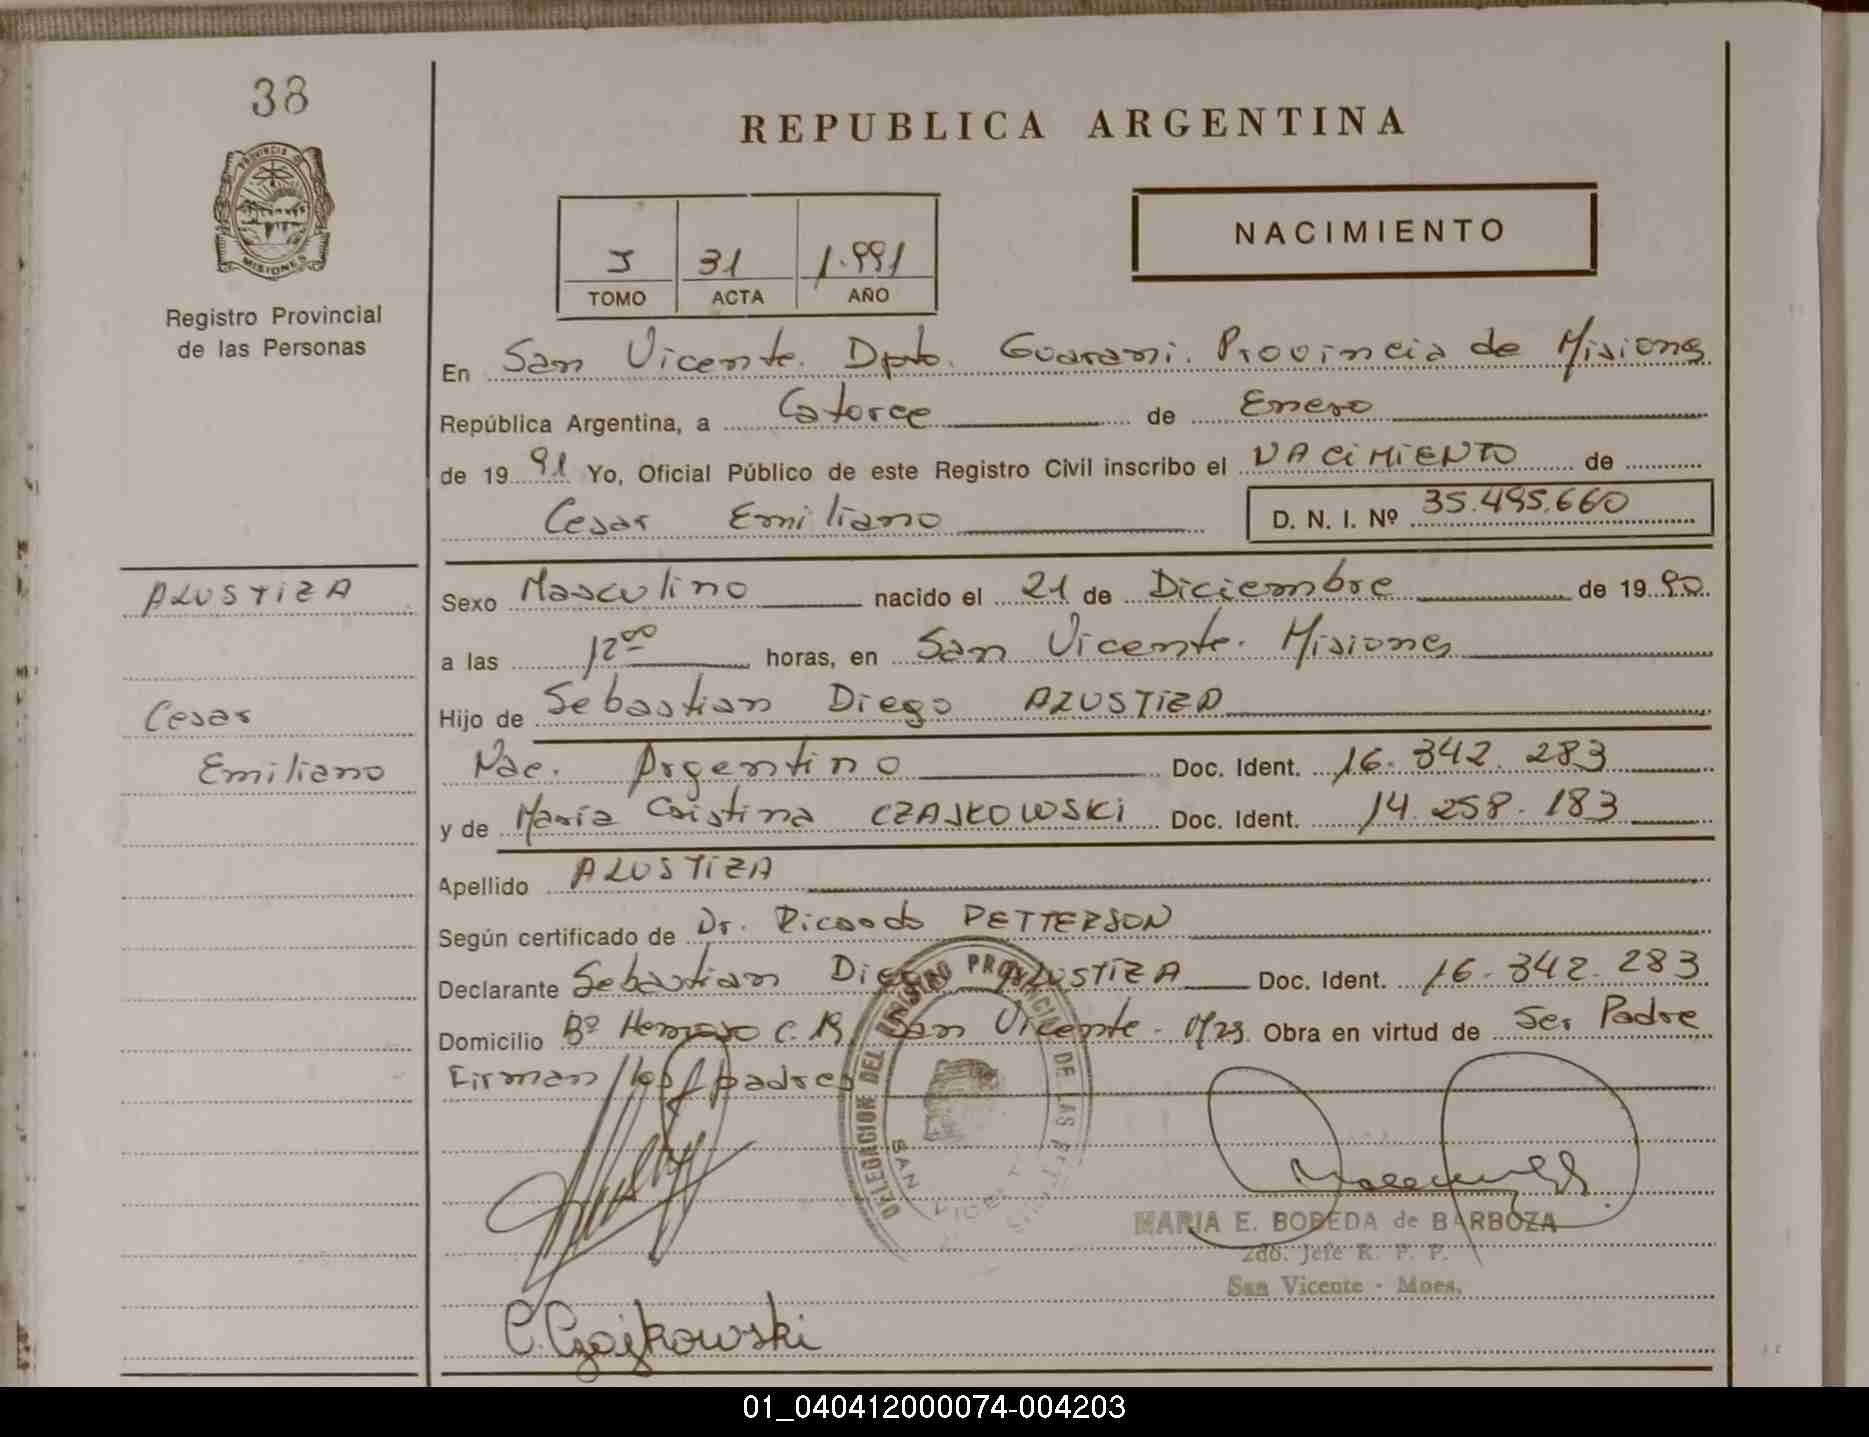 38
REPUBLICA ARGENTINA
PROVINCIA DE
MISIONES
Registro Provincial
de las Personas
NACIMIENTO
31 1.991
TOMO ACTA AÑO
En San Vicente. Dpto. Guarani. Provincia de Misiones
República Argentina, a Catorce de Enero
de 19 91 Yo, Oficial Público de este Registro Civil inscribo el NACIMIENTO de
Cesar Emiliano D. N. I. Nº 35.495.660
ALUSTIZA
Sexo Masculino nacido el 21 de Diciembre de 19 90.
a las 12 00 horas, en San Vicente. Misiones
Cesar
Hijo de Sebastian Diego ALUSTIZA
Emiliano
Nac. Argentino Doc. Ident. 16. 342. 283
y de María Cristina CZAJKOWSKI Doc. Ident. 14. 258. 183
Apellido ALUSTIZA
Según certificado de Dr. Ricardo PETTERSON
Declarante Sebastian Diego ALUSTIZA Doc. Ident. 16. 342. 283
Domicilio Bº San Vicente - Obra en virtud de Ser Padre
Firman los padres
DELEGACION DEL REGISTRO PROVINCIAL DE LAS
SAN VICENTE
MARIA E. BOBEDA de BARBOZA
2do. Jefe R. P. P.
San Vicente - Mnes.
C. Czajkowski
01_040412000074-004203